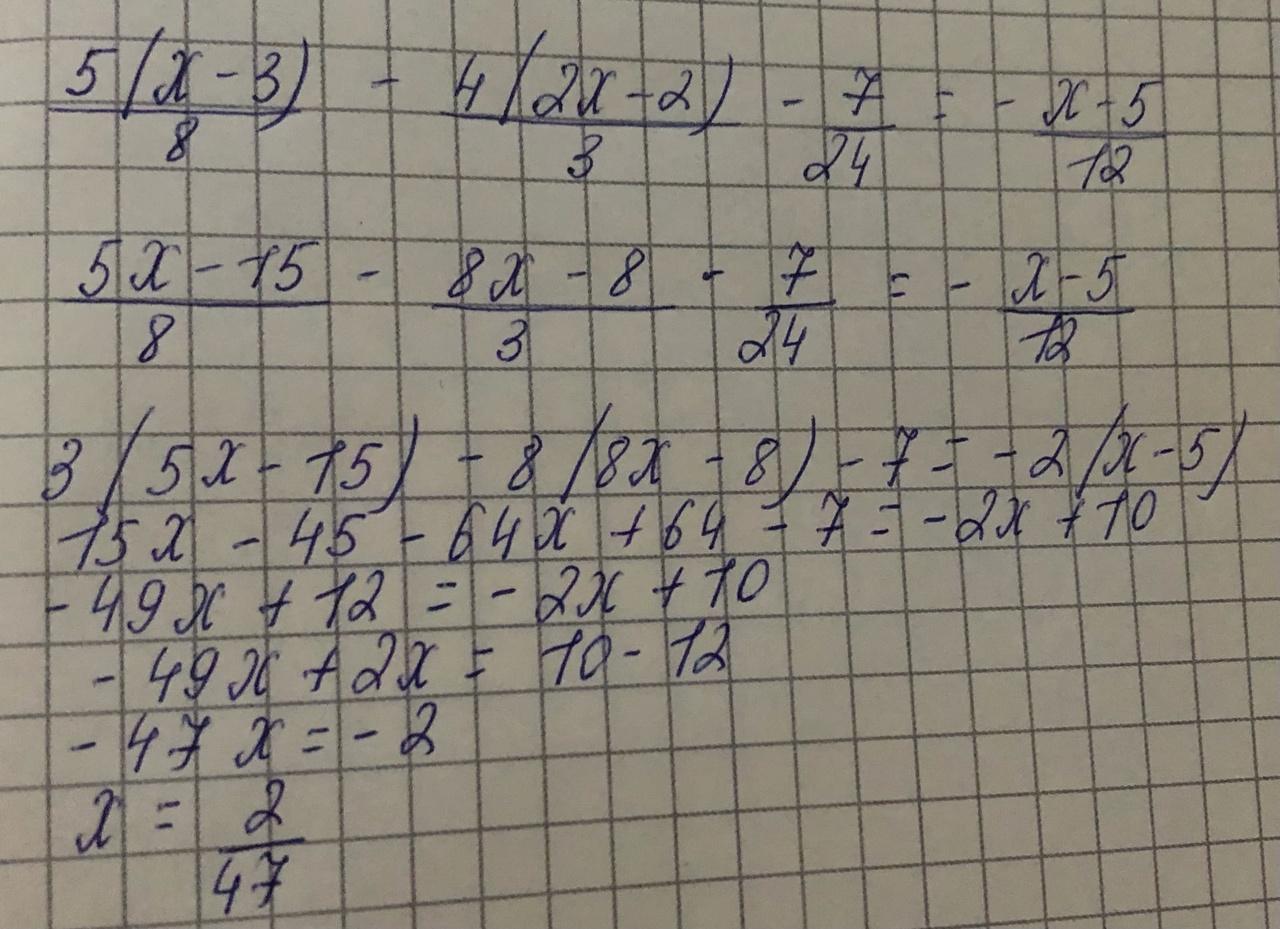 5(x-3)/8 - 4(2x-2)/3 - 7/24 = - x-5/12
5x-15/8 - 8x-8/3 - 7/24 = - x-5/12
3(5x-15) - 8(8x-8) - 7 = -2(x-5)
15x - 45 - 64x + 64 - 7 = -2x + 10
-49x + 12 = -2x + 10
-49x + 2x = 10 - 12
-47x = -2
x = 2/47